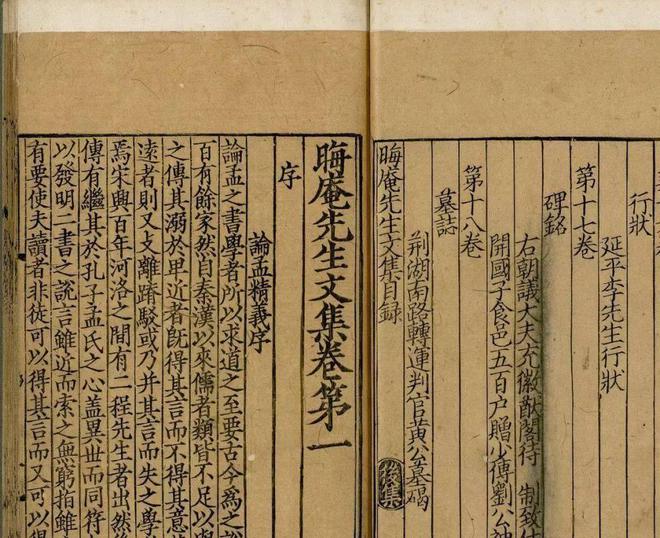 行狀
延平李先生行狀
第十七卷
碑銘
右朝議大夫充徽猷閣待制致仕
開國子食邑五百户贈少傅劉公神
第十八卷
墓誌
荆湖南路轉運判官黄公墓碣
晦庵先生文集目録
後集
晦庵先生文集卷第一
序
論孟精義序
論孟之書學者所以求道之至要古今爲之説
百有餘家然自秦漢以來儒者類皆不足以與
之傳其溺於卑近者既得其言而不得其意
遠者則又支離踳駁或乃并其言而失之學
焉宋興百年河洛之間有二程先生者出然
傳有繼其於孔子孟氏之心盖異世而同符
以發明二書之説言雖近而索之無窮指雖
有要使夫讀者非徒可以得其言而又可以得